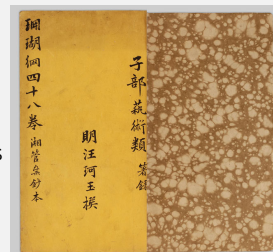 子部 藝術類 著錄
明汪珂玉撰
珊瑚網四十八卷 湘管齋鈔本
s